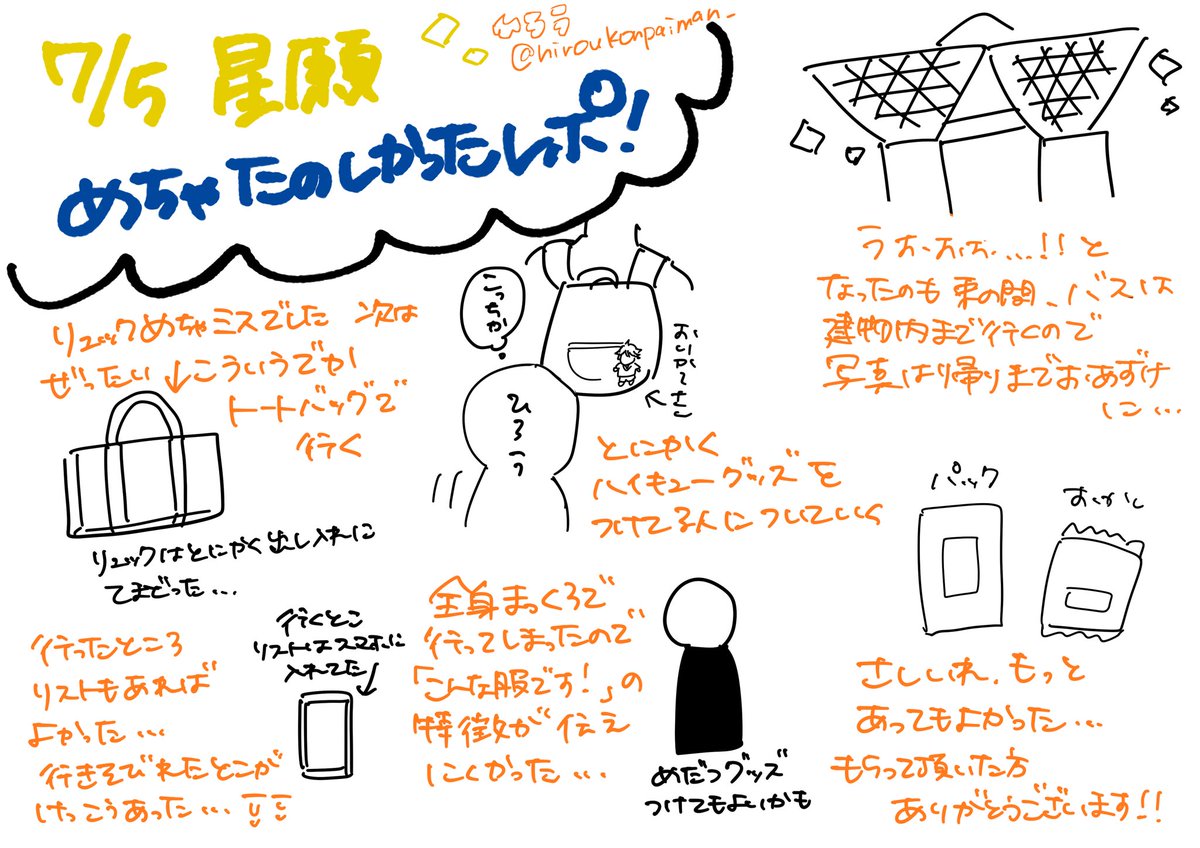 7/5 星願
めちゃたのしかったレポ!
ひろう
@hiroukonpaiman_
うおおお...!!と
なったのも束の間、バスは
建物内まで行くので
写真は帰りまでおあずけ
に...
リュックめちゃミスでした 次は
ぜったい↓こういうでか
トートバッグで
行く
リュックはとにかく出し入れに
てまどった...
こっちか
おいかてさこ
ひろう
とにかく
ハイキューグッズを
つけてる人についていく
パック
おかし
さしいれ、もっと
あってもよかった...
もらって頂いた方
ありがとうございます!!
行ったところ
リストもあれば
よかった...
行きそびれたとこが
けっこうあった...
行くとこ
リストはスマホに
入れてた
全身まっくろで
行ってしまったので
「こんな服です!」の
特徴が伝え
にくかった...
めだつグッズ
つけてもよいかも